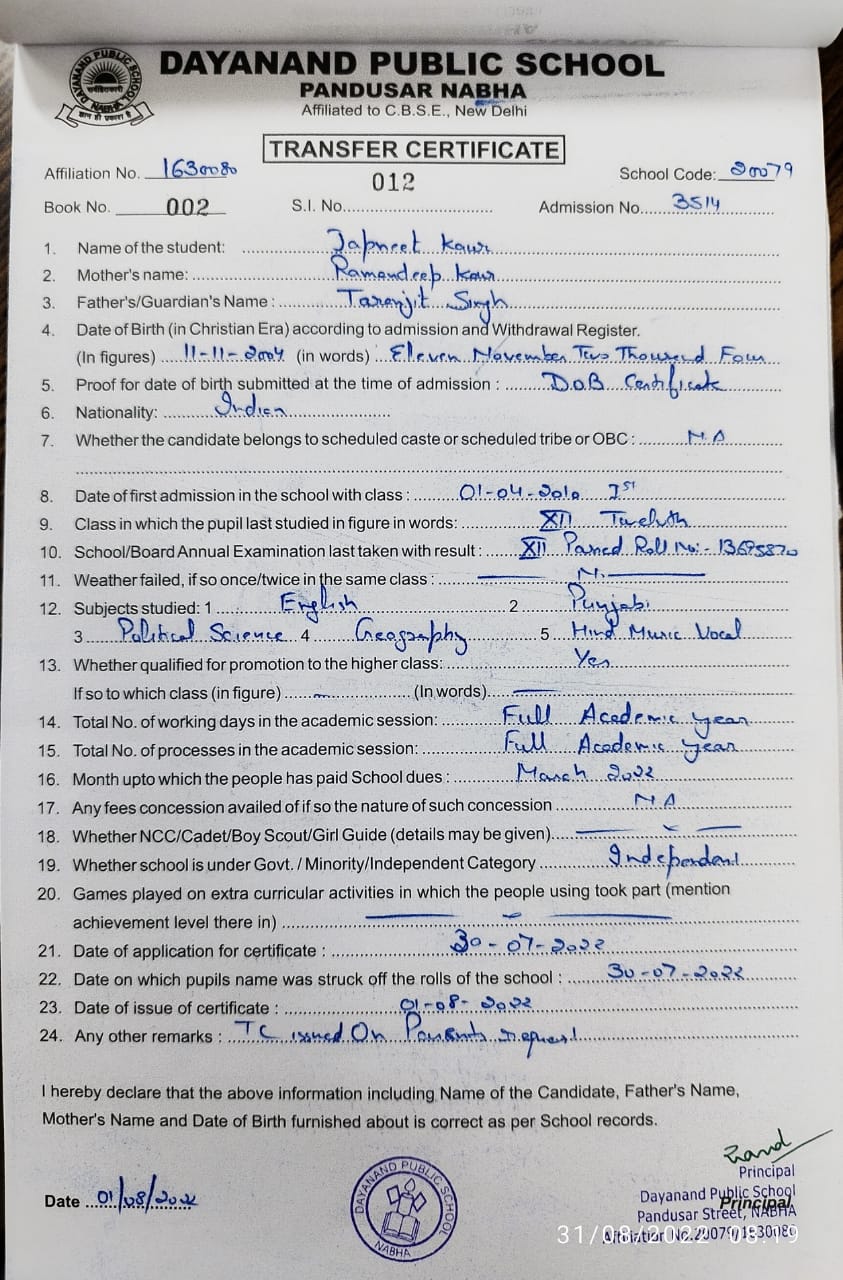 DAYANAND PUBLIC SCHOOL
PANDUSAR NABHA
Affiliated to C.B.S.E., New Delhi
TRANSFER CERTIFICATE
Affiliation No. 1630080 School Code: 20079
012
Book No. 002 S.I. No. Admission No. 3514
1. Name of the student: Japneet Kaur
2. Mother's name: Ramandeep Kaur
3. Father's/Guardian's Name : Taranjit Singh
4. Date of Birth (in Christian Era) according to admission and Withdrawal Register.
(In figures) 11-11-2004 (in words) Eleven November Two Thousand Four
5. Proof for date of birth submitted at the time of admission : D.O.B Certificate
6. Nationality: Indian
7. Whether the candidate belongs to scheduled caste or scheduled tribe or OBC : N.A
8. Date of first admission in the school with class : 01-04-2010 Ist
9. Class in which the pupil last studied in figure in words: XII Twelvth
10. School/Board Annual Examination last taken with result : XII Passed Roll No:- 13695870
11. Weather failed, if so once/twice in the same class :
12. Subjects studied: 1 English 2 Punjabi
3 Political Science 4 Geography 5 Hind Music Vocal
13. Whether qualified for promotion to the higher class: Yes
If so to which class (in figure) (In words)
14. Total No. of working days in the academic session: Full Academic year
15. Total No. of processes in the academic session: Full Academic year
16. Month upto which the people has paid School dues : March 2022
17. Any fees concession availed of if so the nature of such concession N A
18. Whether NCC/Cadet/Boy Scout/Girl Guide (details may be given)
19. Whether school is under Govt. / Minority/Independent Category Independent
20. Games played on extra curricular activities in which the people using took part (mention
achievement level there in)
21. Date of application for certificate : 30-07-2022
22. Date on which pupils name was struck off the rolls of the school : 30-07-2022
23. Date of issue of certificate : 01-08-2022
24. Any other remarks : TC issued On Parents request
I hereby declare that the above information including Name of the Candidate, Father's Name,
Mother's Name and Date of Birth furnished about is correct as per School records.
Date 01/08/2022
DAYANAND PUBLIC SCHOOL
NABHA
Principal
Dayanand Public School
Principal
Pandusar Street, NABHA
Affiliation No.20079/1630080
31/08/2022 08:19